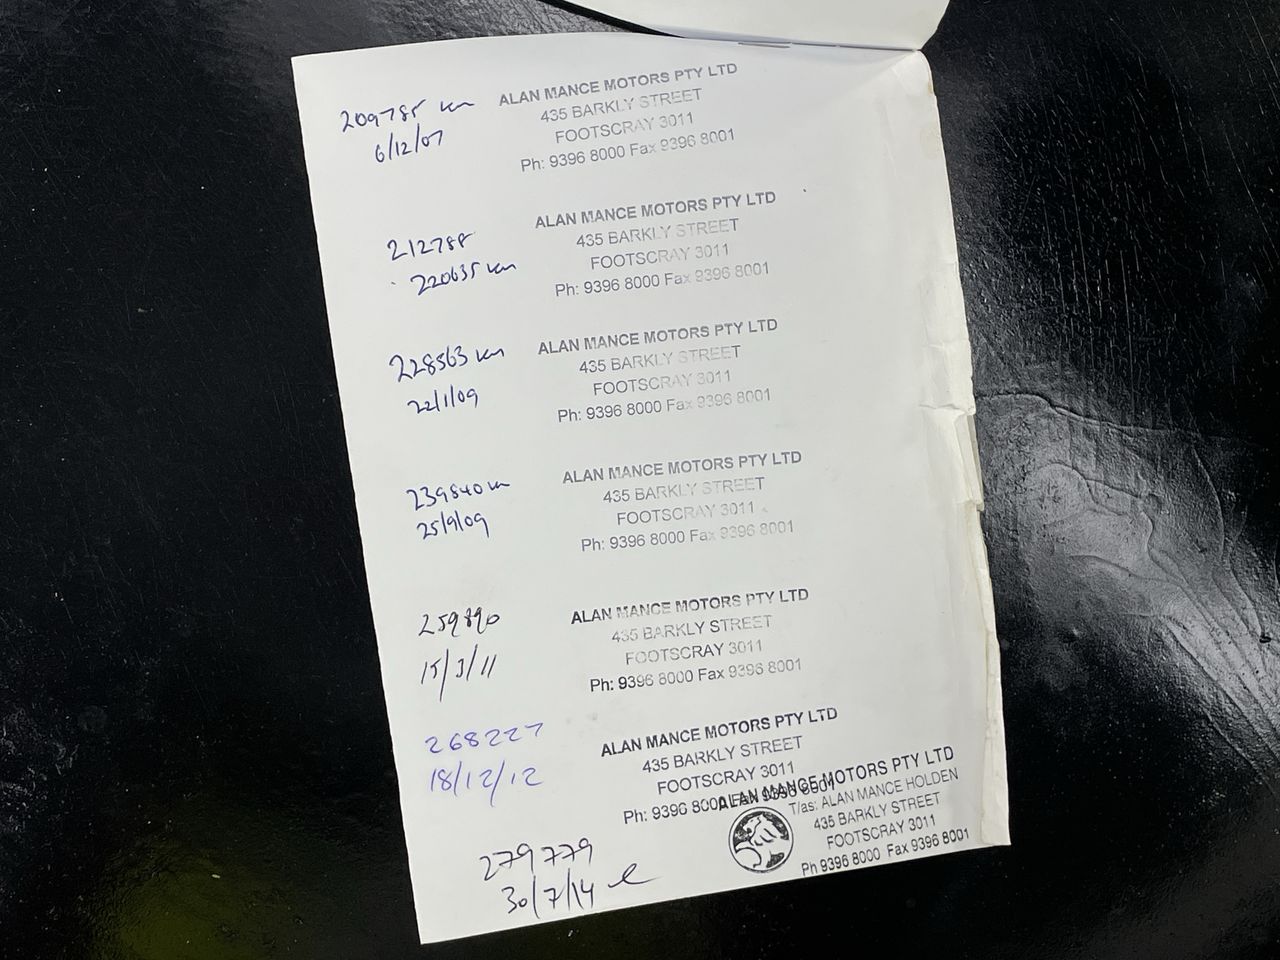 209785 km
6/12/07
ALAN MANCE MOTORS PTY LTD
435 BARKLY STREET
FOOTSCRAY 3011
Ph: 9396 8000 Fax 9396 8001
212788
220635 km
ALAN MANCE MOTORS PTY LTD
435 BARKLY STREET
FOOTSCRAY 3011
Ph: 9396 8000 Fax 9396 8001
228563 km
22/1/09
ALAN MANCE MOTORS PTY LTD
435 BARKLY STREET
FOOTSCRAY 3011
Ph: 9396 8000 Fax 9396 8001
239840 km
25/9/09
ALAN MANCE MOTORS PTY LTD
435 BARKLY STREET
FOOTSCRAY 3011
Ph: 9396 8000 Fax 9396 8001
259890
15/3/11
ALAN MANCE MOTORS PTY LTD
435 BARKLY STREET
FOOTSCRAY 3011
Ph: 9396 8000 Fax 9396 8001
268227
18/12/12
ALAN MANCE MOTORS PTY LTD
435 BARKLY STREET
FOOTSCRAY 3011
Ph: 9396 8000 Fax 9396 8001
279779
30/7/14
ALAN MANCE MOTORS PTY LTD
T/as: ALAN MANCE HOLDEN
435 BARKLY STREET
FOOTSCRAY 3011
Ph 9396 8000 Fax 9396 8001